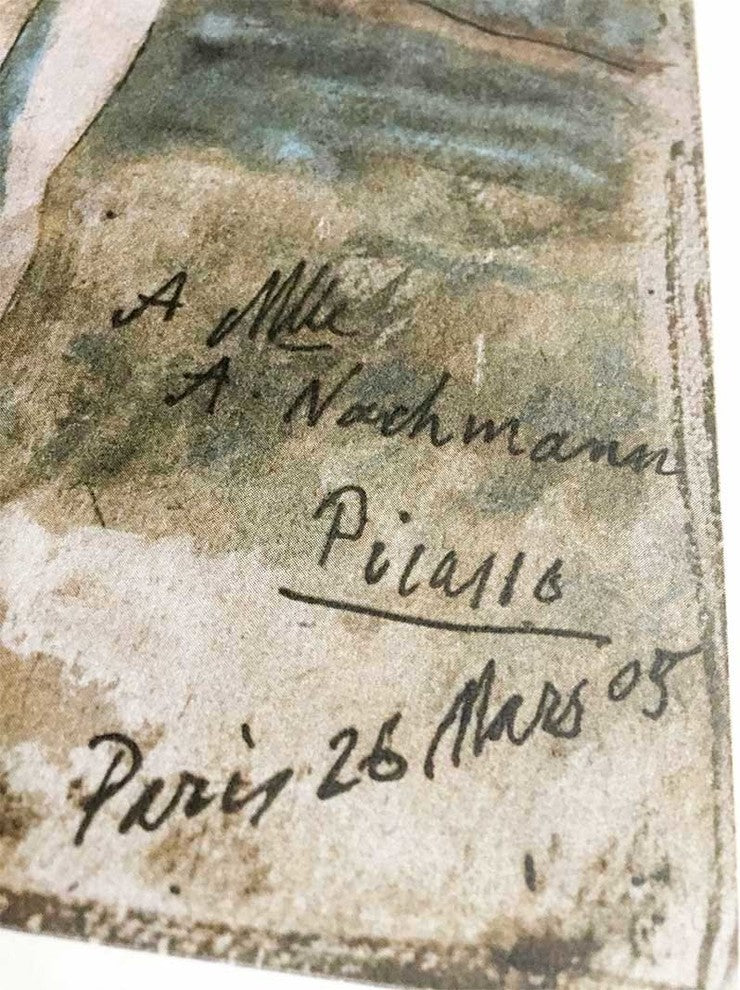 A Mlle
A. Nachmann
Picasso
Paris 26 Mars 05